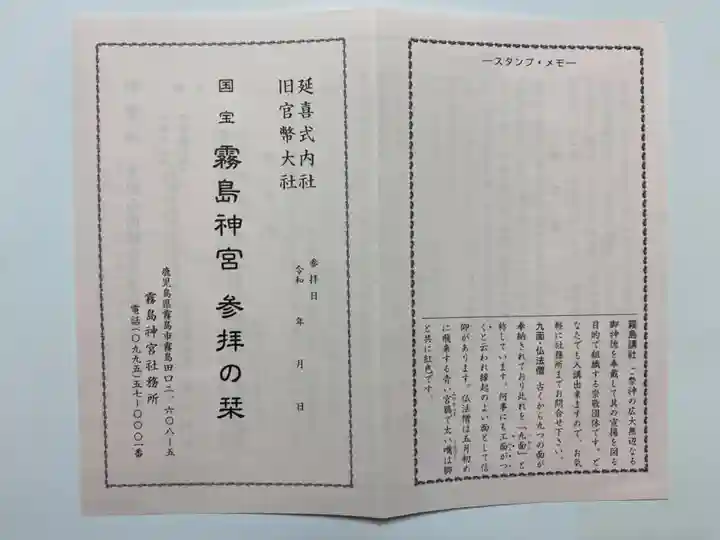 ―スタンプ・メモ―
霧島講社 ご祭神の広大無辺なる
御神徳を奉戴して其の宣揚を図る
目的で組織する崇敬団体です。ど
なたでも入講出来ますので、お気
軽に社務所までお問合せ下さい。
九面・仏法僧 古くから九つの面が
奉納されており此れを「九面」と
称しています。何事にも工面がつ
くと云われ縁起のよい面として信
仰があります。仏法僧は五月初め
に飛来する青い宮鴉で太い嘴は脚
と共に紅色です。
延喜式内社
旧官幣大社
国宝 霧島神宮 参拝の栞
参拝日
令和 年 月 日
鹿児島県霧島市霧島田口二、六〇八―五
霧島神宮社務所
電話(〇九九五)五七―〇〇〇一番